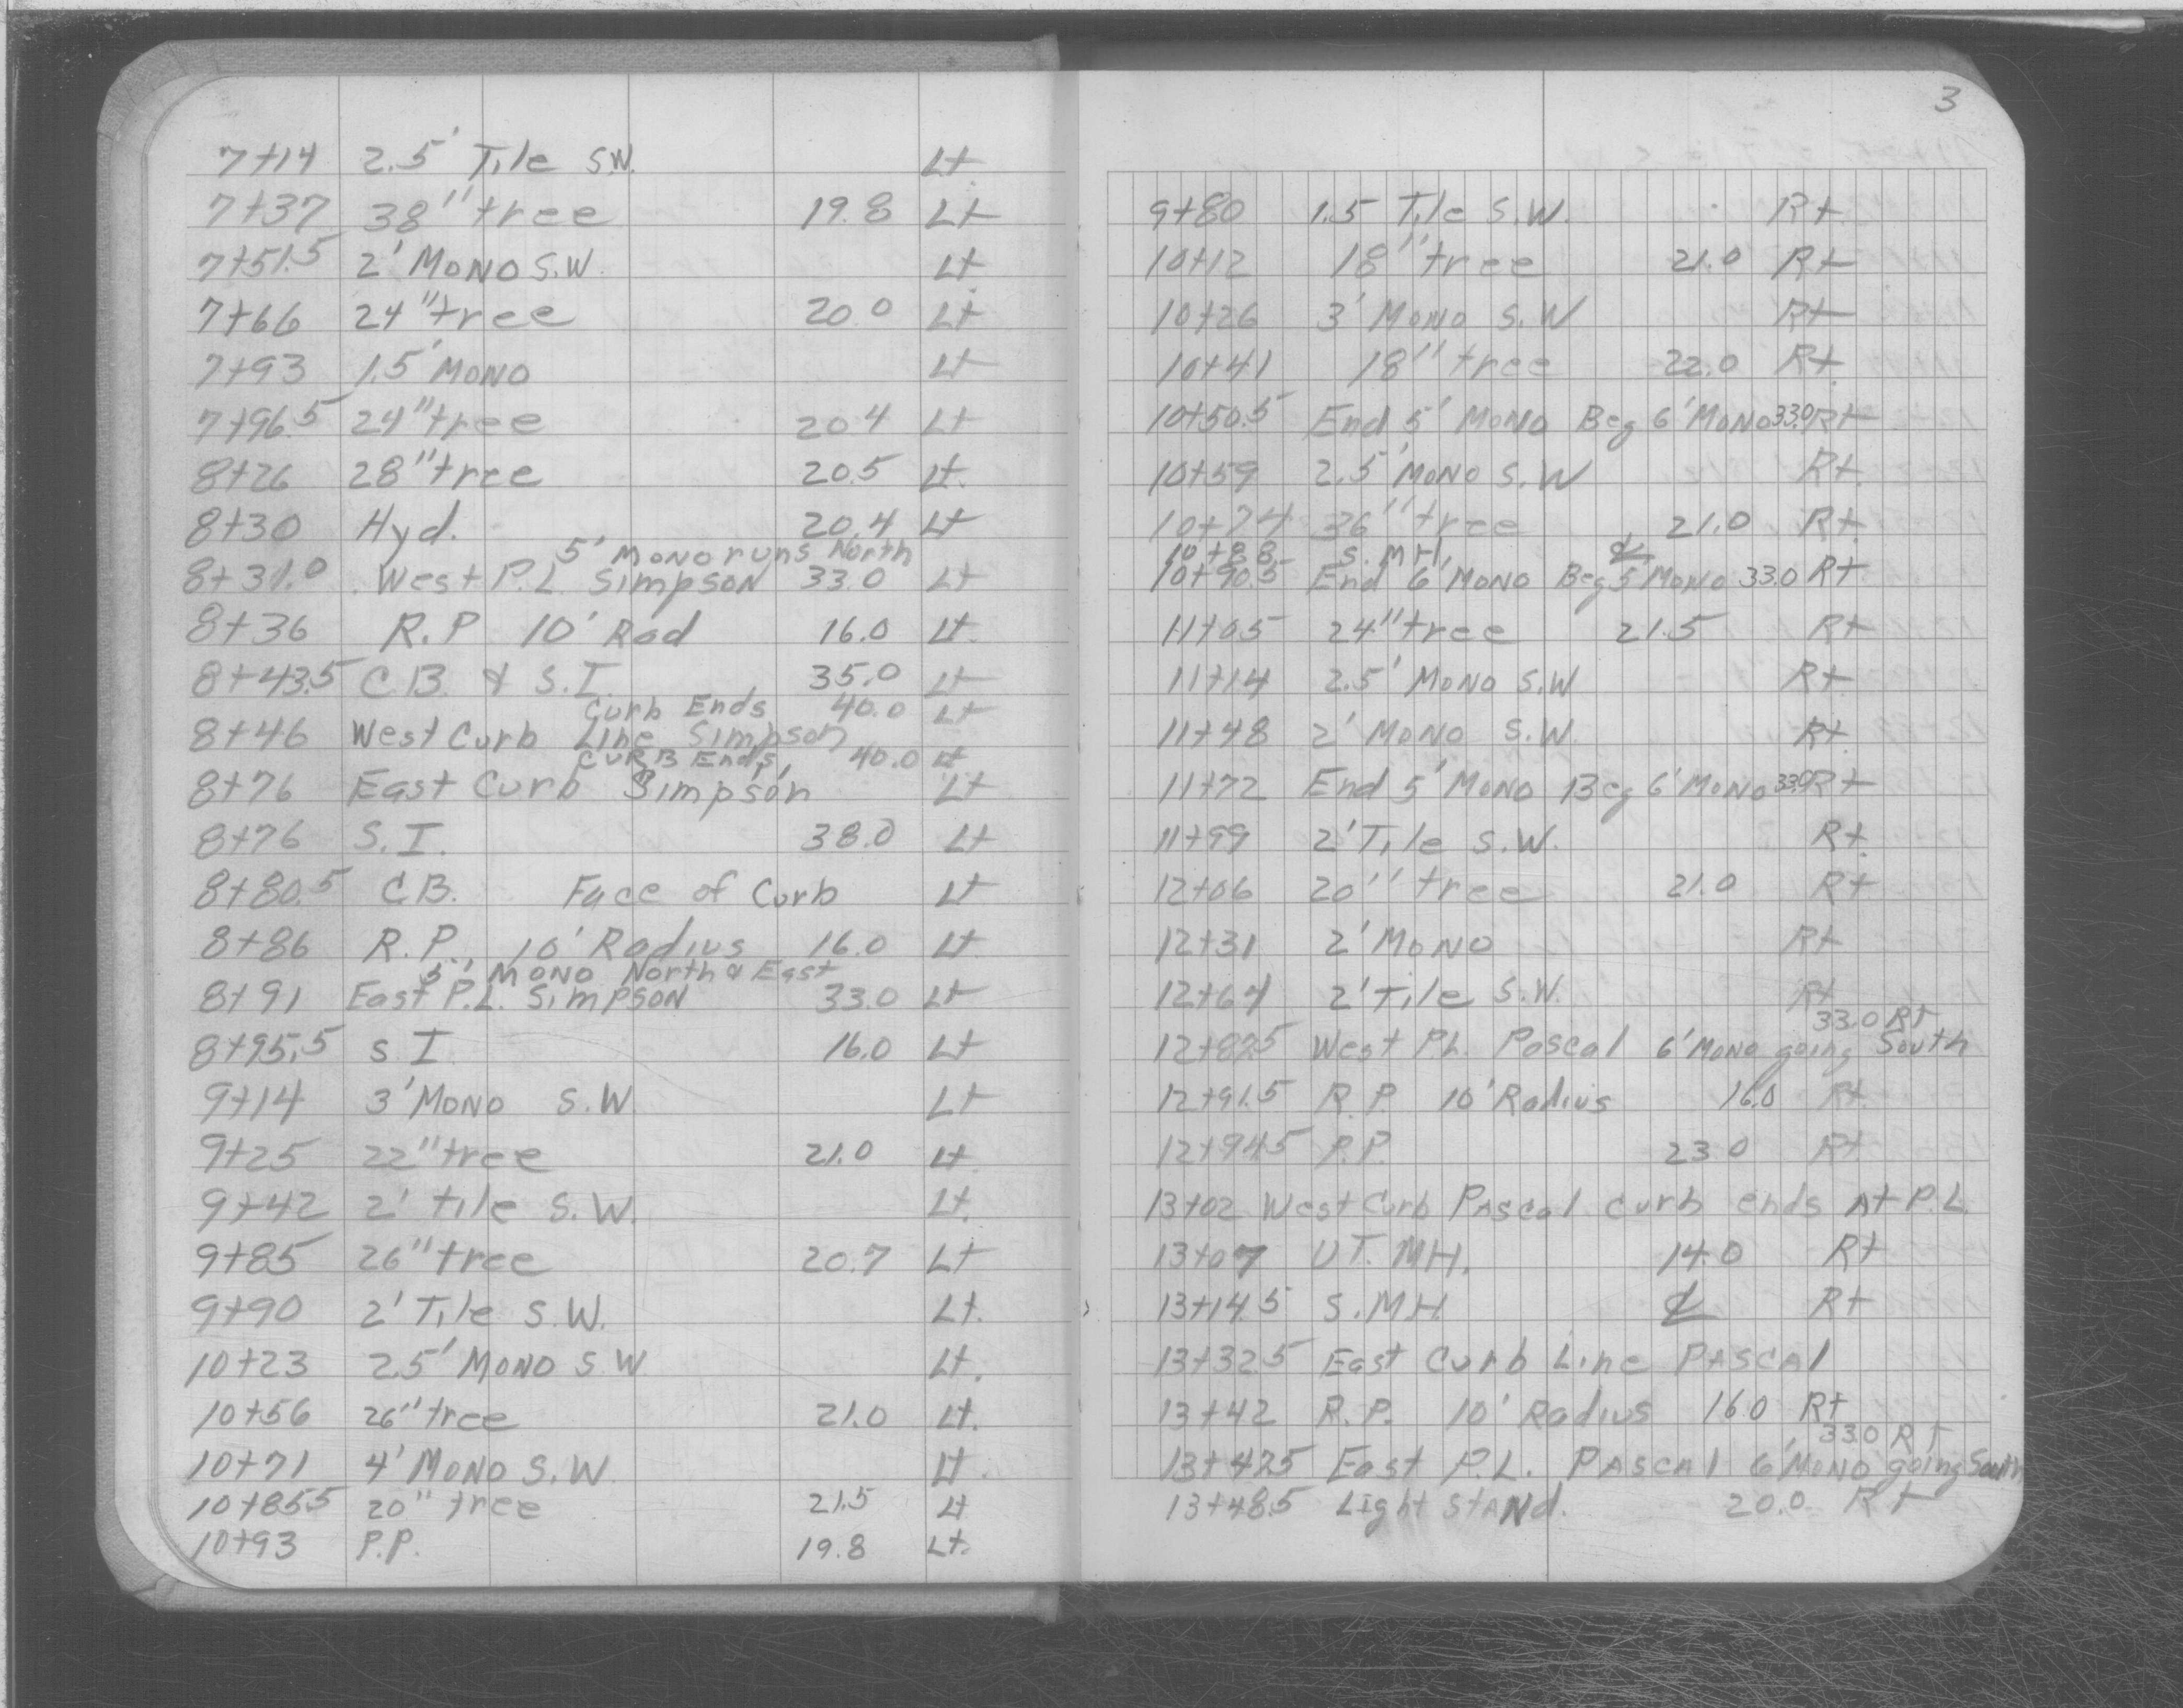 7+14 2.5' Tile S.W. Lt.
7+37 38" tree 19.8 Lt
7+51.5 2' MONO S.W. Lt.
7+66 24" tree 20.0 Lt
7+93 1.5' MONO Lt
7+96.5 24" tree 20.4 Lt
8+26 28" tree 20.5 Lt.
8+30 Hyd. 20.4 Lt
5' MONO runs North
8+31.0 West P.L. Simpson 33.0 Lt
8+36 R.P 10' Rad 16.0 Lt.
8+43.5 C.B. & S.I. 35.0 Lt
Curb Ends 40.0 Lt
8+46 West Curb Line Simpson
CURB Ends, 40.0 Lt
8+76 East Curb Simpson Lt
8+76 S.I. 38.0 Lt
8+80.5 C.B. Face of Curb Lt
8+86 R.P., 10' Radius 16.0 Lt
5' MONO North & East
8+91 East P.L. Simpson 33.0 Lt
8+95.5 S I 16.0 Lt
9+14 3' MONO S.W. Lt
9+25 22" tree 21.0 Lt
9+42 2' tile S.W. Lt.
9+85 26" tree 20.7 Lt
9+90 2' Tile S.W. Lt.
10+23 2.5' MONO S.W Lt.
10+56 26" tree 21.0 Lt.
10+71 4' MONO S.W. Lt.
10+85.5 20" tree 21.5 Lt
10+93 P.P. 19.8 Lt.
3
9+80 1.5 Tile S.W. Rt.
10+12 18" tree 21.0 Rt
10+26 3' MONO S.W Rt
10+41 18" tree 22.0 Rt.
10+50.5 End 5' MONO Beg 6' MONO 33.0 Rt
10+59 2.5' MONO S.W Rt.
10+74 36" tree 21.0 Rt.
10+88 S. MH, ℄
10+90.5 End 6' MONO Beg 5' MONO 33.0 Rt
11+05 24" tree 21.5 Rt
11+14 2.5' MONO S.W Rt
11+48 2' MONO S.W. Rt.
11+72 End 5' MONO Beg 6' MONO 33.0 Rt
11+99 2' Tile S.W. Rt.
12+06 20" tree 21.0 Rt
12+31 2' MONO Rt
12+64 2' Tile S.W. Rt
33.0 Rt
12+82.5 West P.L. Pascal 6' MONO going South
12+91.5 R.P. 10' Radius 16.0 Rt
12+94.5 P.P. 23.0 Rt
13+02 West Curb Pascal curb ends At P.L.
13+07 UT. MH. 14.0 Rt
13+14.5 S.MH. ℄ Rt
13+32.5 East Curb Line PASCAl
13+42 R.P. 10' Radius 16.0 Rt
33.0 Rt
13+42.5 East P.L. PASCAl 6' MONO going South
13+48.5 Light StANd. 20.0 Rt